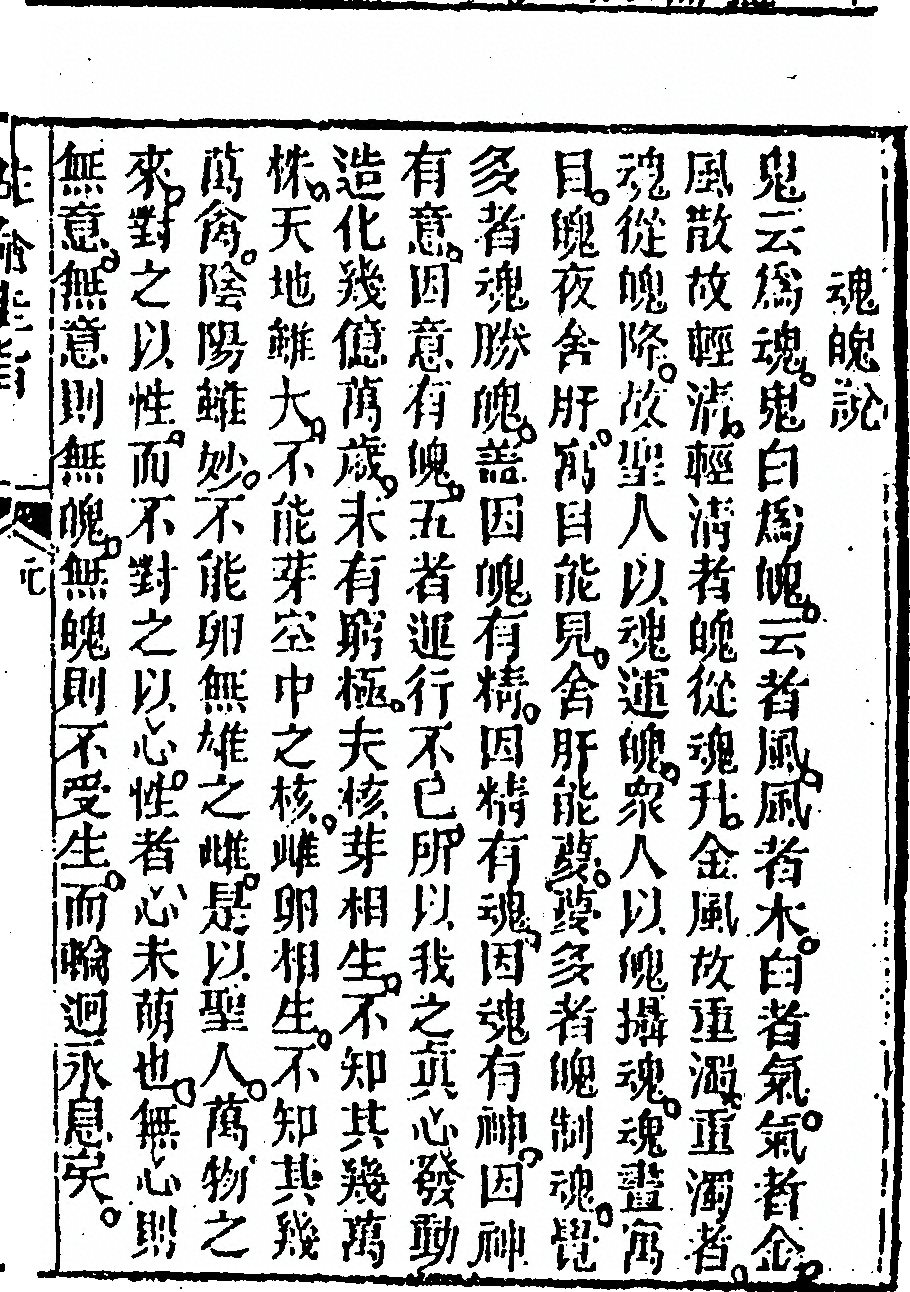 魂魄說
鬼云爲魂。鬼白爲魄。云者風。風者木。白者氣。氣者金。
風散故輕清。輕清者魄從魂升。金風故重濁。重濁者。
魂從魄降。故聖人以魂運魄。衆人以魄攝魂。魂晝寓
目。魄夜舍肝。寓目能見。舍肝能夢。夢多者魄制魂。覺
多者魂勝魄。蓋因魄有精。因精有魂。因魂有神。因神
有意。因意有魄。五者運行不已。所以我之真心發動
造化幾億萬歲。未有窮極。夫核芽相生。不知其幾萬
株。天地雖大。不能芽空中之核。雌卵相生。不知其幾
萬禽。陰陽雖妙。不能卵無雄之雌。是以聖人。萬物之
來。對之以性。而不對之以心。性者心未萌也。無心則
無意。無意則無魄。無魄則不受生。而輪迴永息矣。